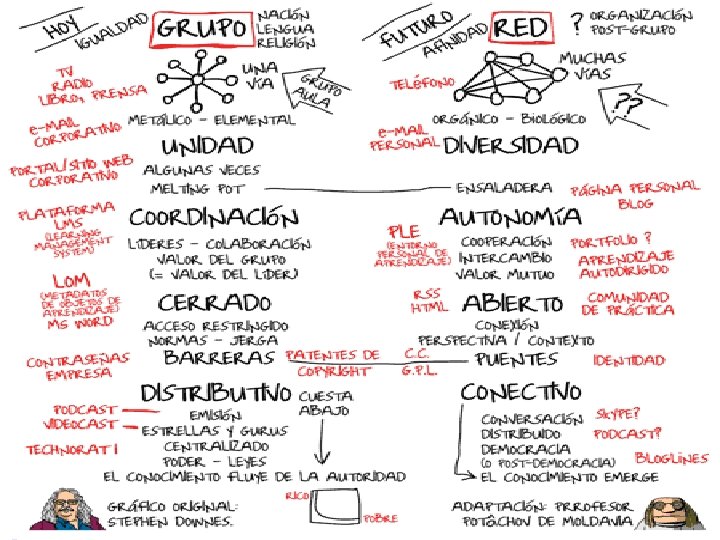 HOY
IGUALDAD
GRUPO
NACIÓN
LENGUA
RELIGIÓN
UNA
VÍA
GRUPO
AULA
TV
RADIO
LIBRO, PRENSA
METÁLICO - ELEMENTAL
E-MAIL
CORPORATIVO
UNIDAD
PORTAL/SITIO WEB
CORPORATIVO
ALGUNAS VECES
MELTING POT
PLATAFORMA
LMS
(LEARNING
MANAGEMENT
SYSTEM)
COORDINACIÓN
LÍDERES - COLABORACIÓN
VALOR DEL GRUPO
(= VALOR DEL LÍDER)
LOM
(METADATOS
DE OBJETOS DE
APRENDIZAJE)
MS WORD
CERRADO
ACCESO RESTRINGIDO
NORMAS - JERGA
BARRERAS
CONTRASEÑAS
EMPRESA
PATENTES DE
COPYRIGHT
C.C.
G.P.L.
DISTRIBUTIVO
CUESTA
ABAJO
PODCAST
VIDEOCAST
TECHNORATI
EMISIÓN
ESTRELLAS Y GURUS
CENTRALIZADO
PODER - LEYES
EL CONOCIMIENTO FLUYE DE LA AUTORIDAD
RICO
POBRE
GRÁFICO ORIGINAL:
STEPHEN DOWNES.
FUTURO
AFINIDAD
RED
? ORGANIZACIÓN
POST-GRUPO
MUCHAS
VÍAS
??
TELÉFONO
ORGÁNICO - BIOLÓGICO
E-MAIL
PERSONAL
DIVERSIDAD
ENSALADERA
PÁGINA PERSONAL
BLOG
AUTONOMÍA
PLE
(ENTORNO
PERSONAL DE
APRENDIZAJE)
COOPERACIÓN
INTERCAMBIO
VALOR MUTUO
PORTFOLIO?
APRENDIZAJE
AUTODIRIGIDO
RSS
HTML
ABIERTO
COMUNIDAD
DE PRÁCTICA
CONEXIÓN
PERSPECTIVA / CONTEXTO
PUENTES
IDENTIDAD
CONECTIVO
CONVERSACIÓN
DISTRIBUIDO
DEMOCRACIA
(O POST-DEMOCRACIA)
EL CONOCIMIENTO EMERGE
SKYPE?
PODCAST?
BLOGLINES
ADAPTACIÓN: PRROFESOR
POTÂCHOV DE MOLDAVIA